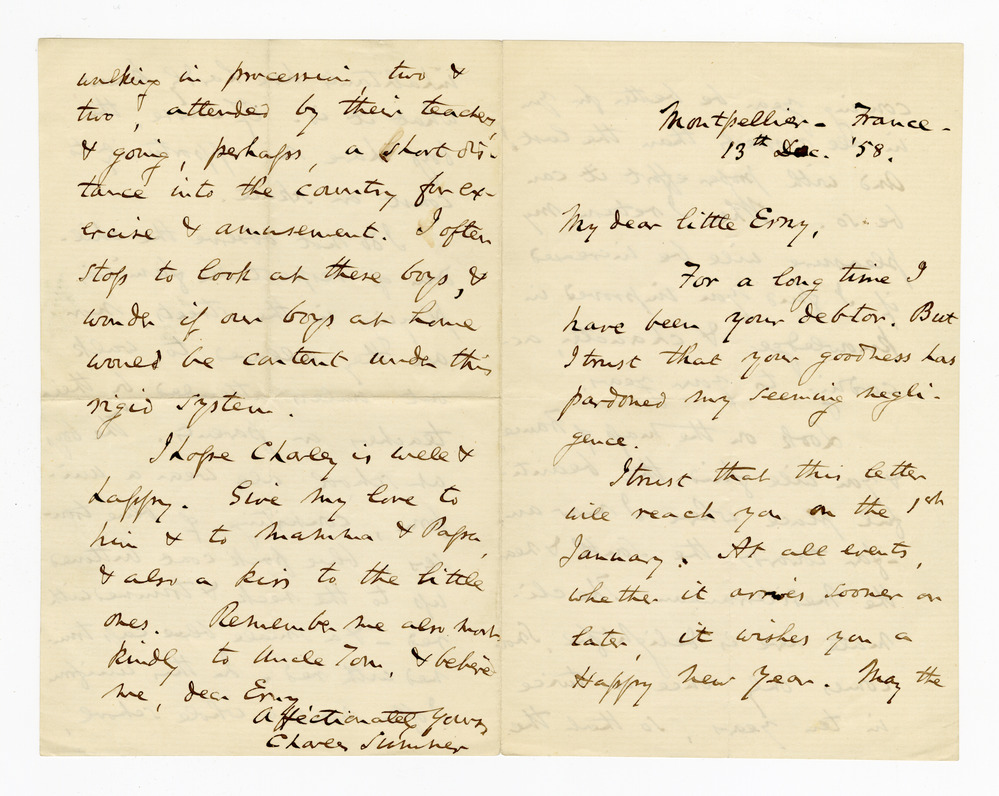 Montpellier – France –
13th Dec. '58.
My dear little Erny,
For a long time I
have been your debtor. But
I trust that your goodness has
pardoned my seeming negli-
gence.
I trust that this letter
will reach you on the 1st
January. At all events,
whether it arrives sooner or
later, it wishes you a
Happy New Year. May the
walking in procession, two &
two, attended by their teachers,
& going, perhaps, a short dis-
tance into the country for ex-
ercise & amusement. I often
stop to look at these boys, &
wonder if our boys at home
would be content under this
rigid system.
I hope Charley is well &
happy. Give my love to
him & to Mamma, & Papa,
& also a kiss to the little
ones. Remember me also most
kindly to Uncle Tom, & believe
me, dear Erny
Affectionately Yours,
Charles Sumner